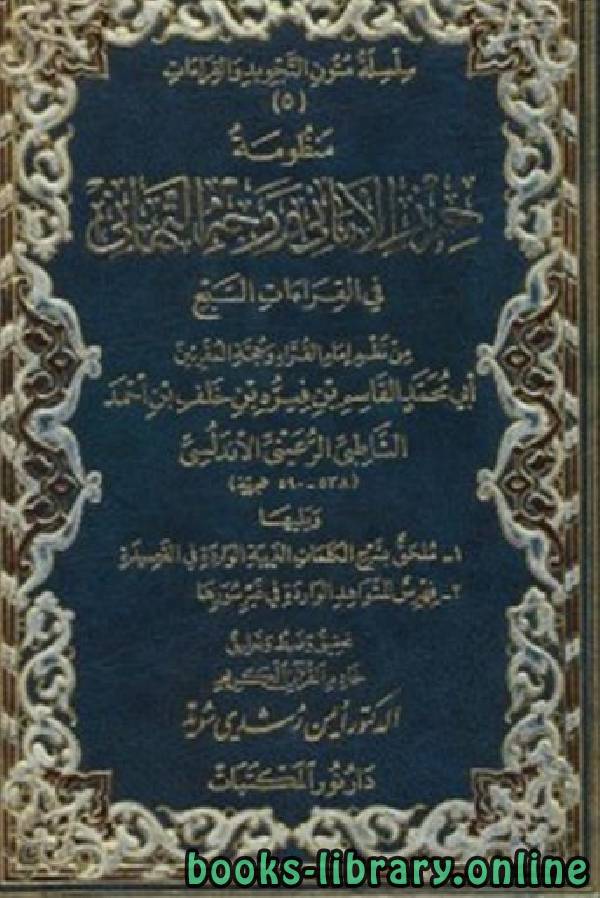 سِلْسِلَةُ مُتُونِ التَّجْوِيدِ وَالقِرَاءَاتِ
(٥)
مَنْظُومَةُ
حِرْزِ الأَمَانِي وَوَجْهِ التَّهَانِي
فِي القِرَاءَاتِ السَّبْعِ
مِنْ نَظْمِ إِمَامِ القُرَّاءِ وَحُجَّةِ المُقْرِئِينَ
أَبِي مُحَمَّدٍ القَاسِمِ بْنِ فِيرُّه بْنِ خَلَفِ بْنِ أَحْمَدَ
الشَّاطِبِيِّ الرُّعَيْنِيِّ الأَنْدَلُسِيِّ
(٥٣٨ - ٥٩٠ هجرية)
وَيَلِيهَا
١- مُلْحَقٌ بِشَرْحِ الكَلِمَاتِ الغَرِيبَةِ الوَارِدَةِ فِي القَصِيدَةِ
٢- فِهْرِسٌ لِلشَّوَاهِدِ الوَارِدَةِ فِي غَيْرِ سُوَرِهَا
تحقيق وضبط وتعليق
خَادِمِ القُرْآنِ الكَرِيمِ
الدكتور أيمن رشدي سويد
دَارُ نُورِ المَكْتَبَاتِ
books-library.online